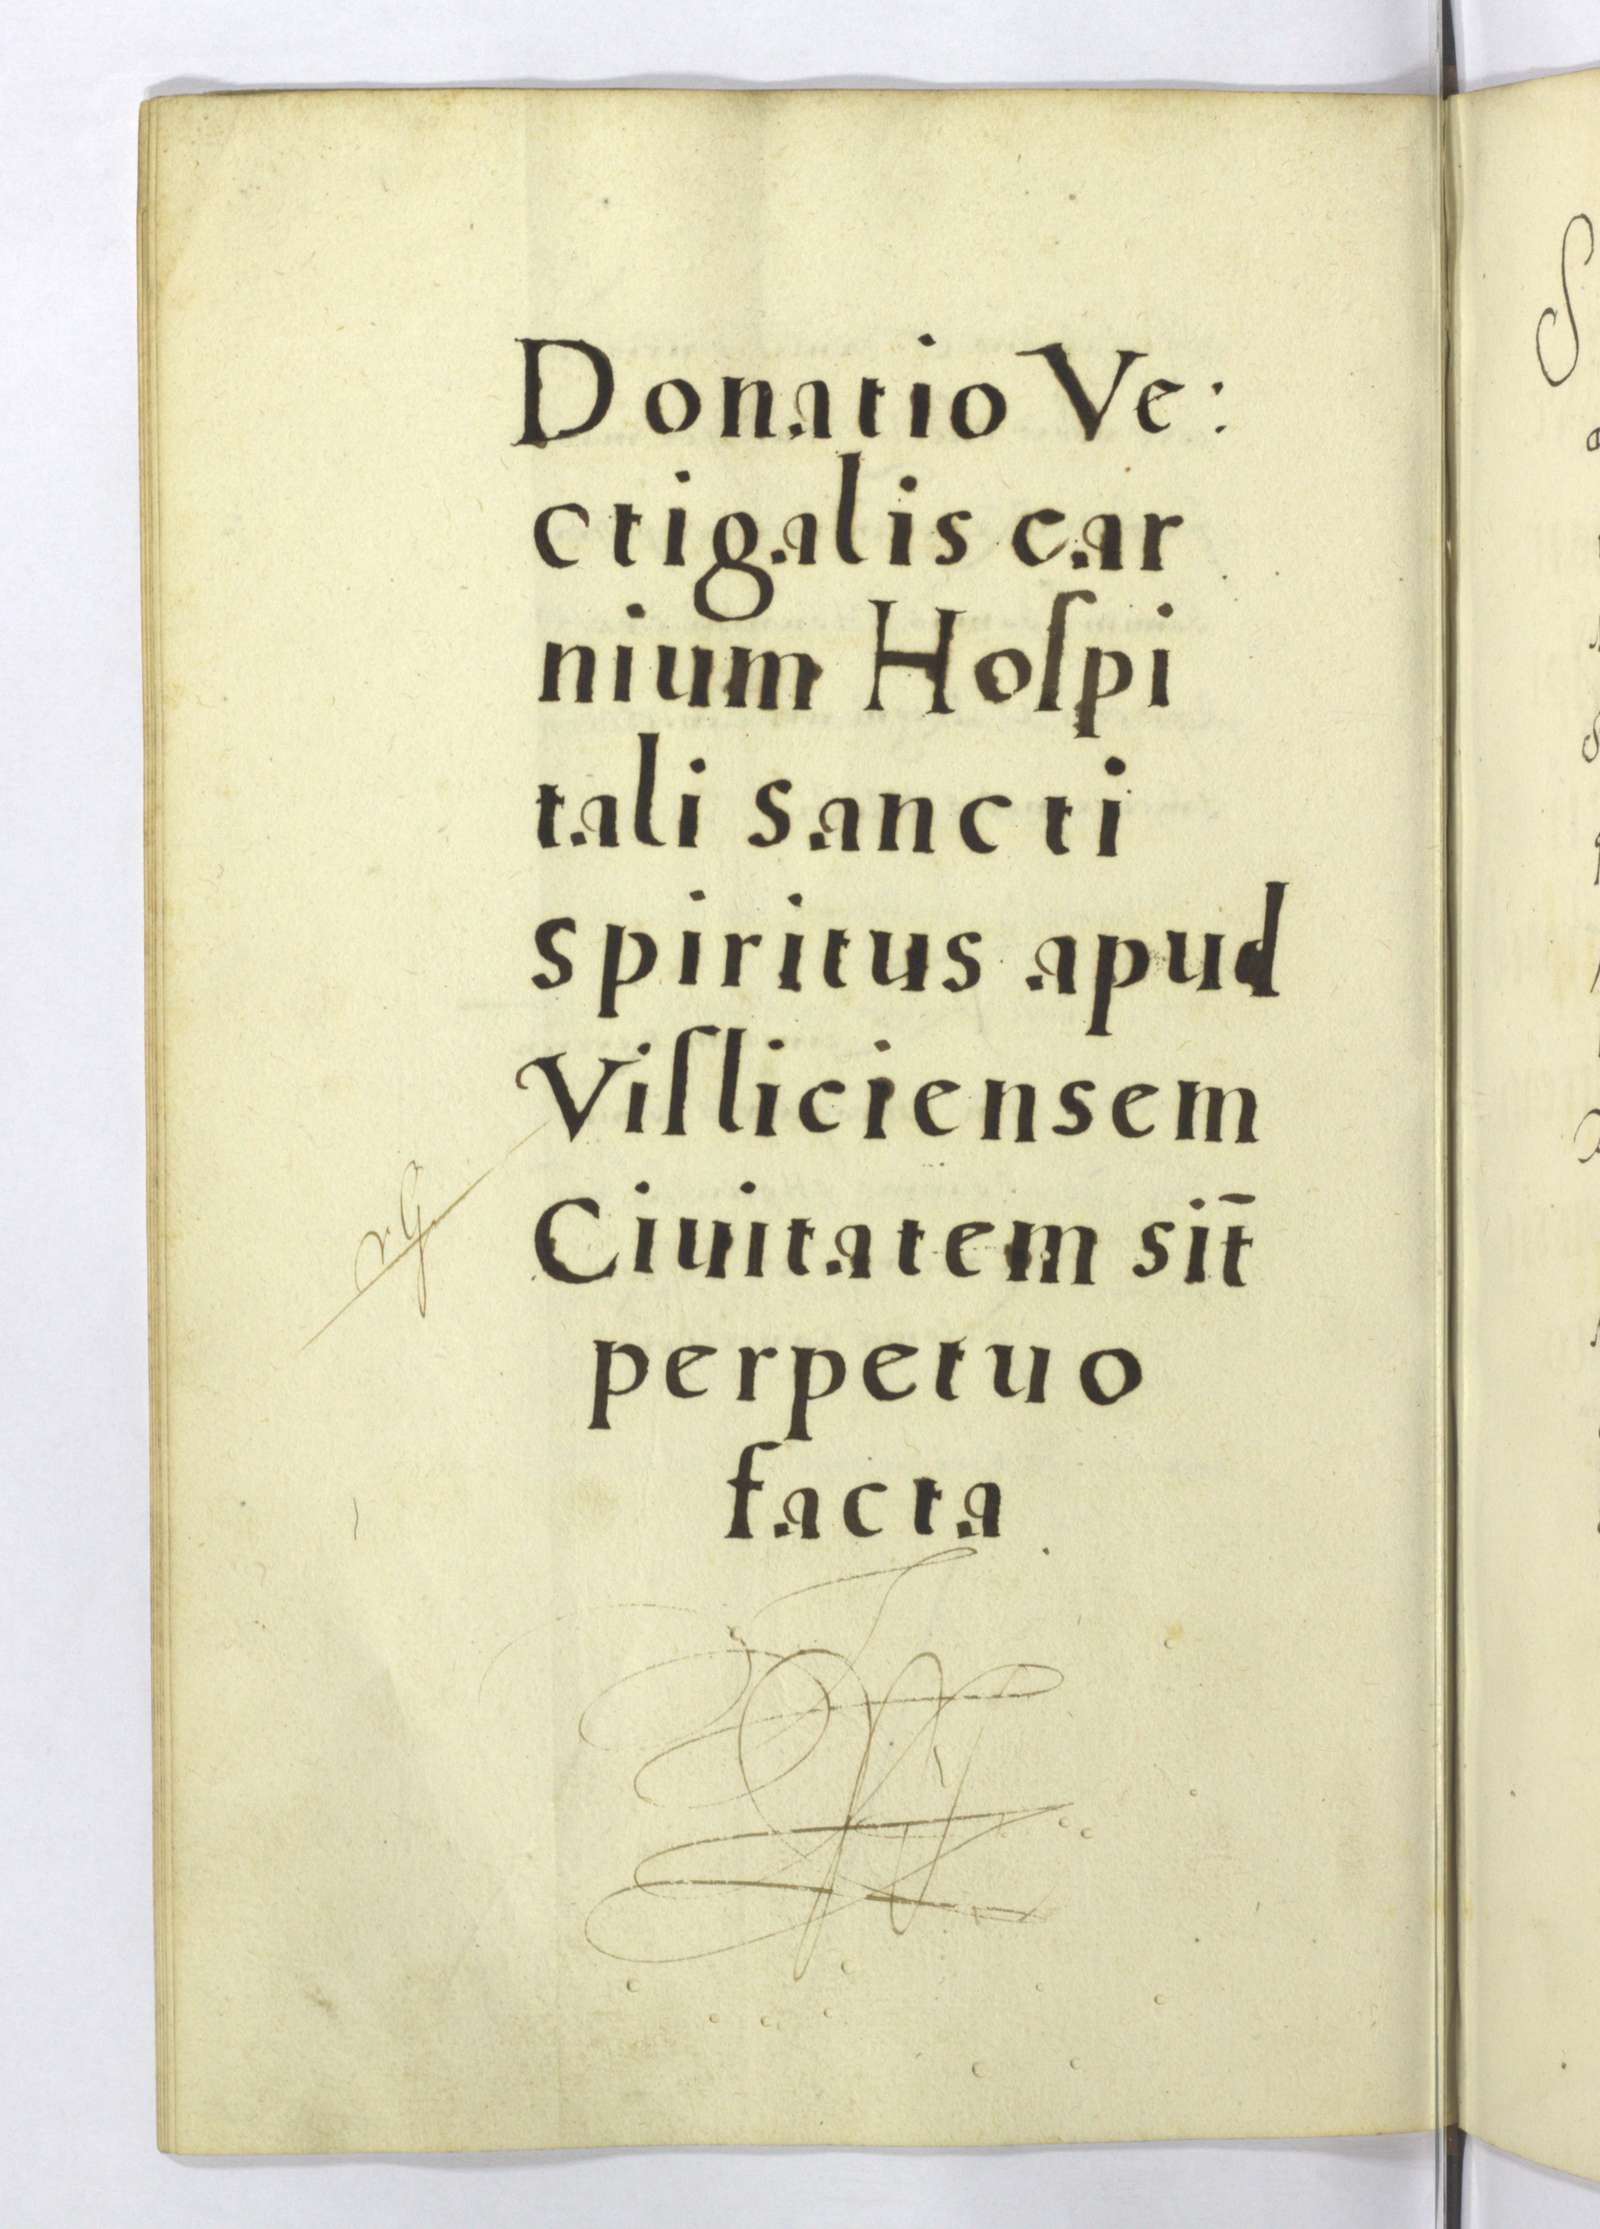 Donatio Ve:
ctigalis car
nium Hoſpi
tali sancti
spiritus apud
Viſliciensem
Ciuitatem sit̄
perpetuo
facta